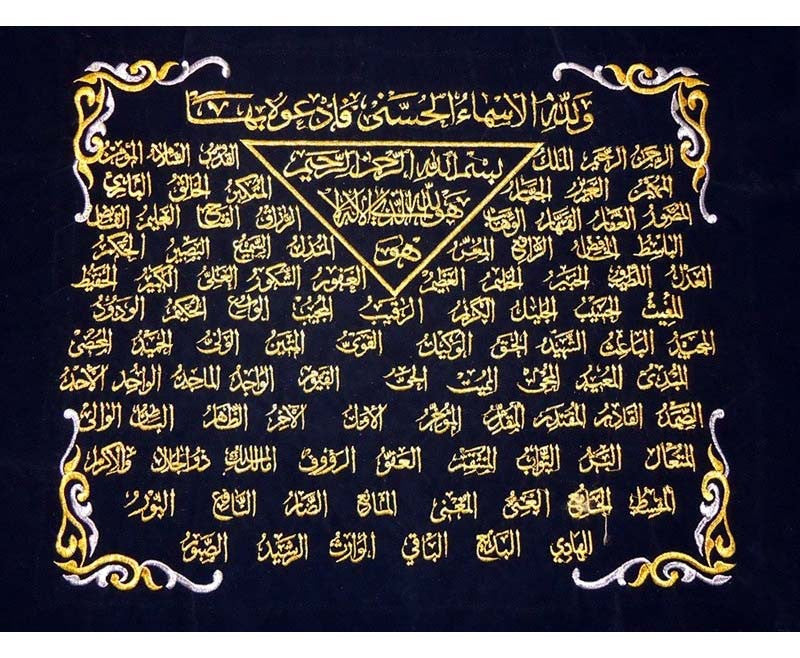 وَلِلَّهِ الأَسْمَاءُ الحُسْنَى فَادْعُوهُ بِهَا
بسم الله الرحمن الرحيم
هو الله الذي لا اله الا
هو
الرحمن الرحيم الملك القدوس السلام المؤمن
المهيمن العزيز الجبار المتكبر الخالق البارئ
المصور الغفار القهار الوهاب الرزاق الفتاح العليم القابض
الباسط الخافض الرافع المعز المذل السميع البصير الحكم
العدل اللطيف الخبير الحليم العظيم الغفور الشكور العلي الكبير الحفيظ
المغيث الحسيب الجليل الكريم الرقيب المجيب الواسع الحكيم الودود
المجيد الباعث الشهيد الحق الوكيل القوي المتين الولي الحميد المحصي
المبدئ المعيد المحيي المميت الحي القيوم الواجد الماجد الواحد الاحد
الصمد القادر المقتدر المقدم المؤخر الاول الآخر الظاهر الباطن الوالي
المتعال البر التواب المنتقم العفو الرؤوف مالك الملك ذو الجلال والاكرام
المقسط الجامع الغني المغني المانع الضار النافع النور
الهادي البديع الباقي الوارث الرشيد الصبور